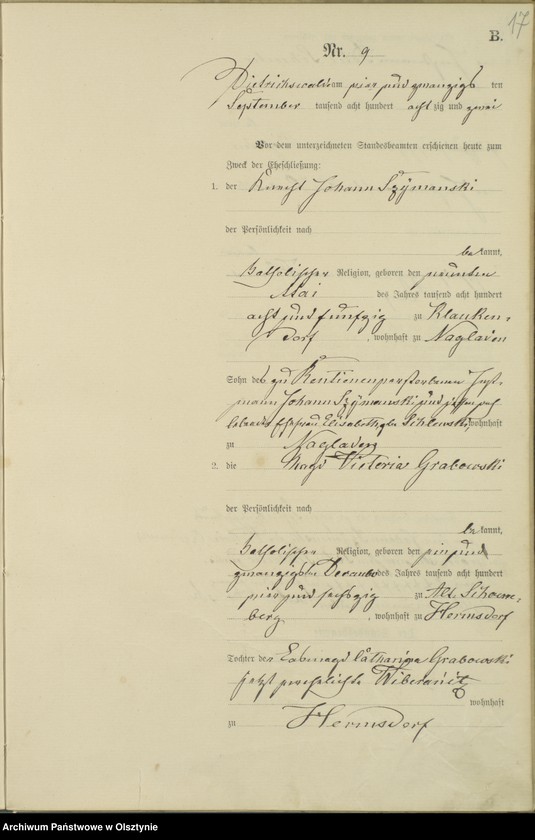 17
B.
Nr. 9
Dietrichswalde am vier und zwanzigsten
September tausend acht hundert acht zig und zwei
Vor dem unterzeichneten Standesbeamten erschienen heute zum
Zweck der Eheschließung:
1. der Knecht Johann Szymanski
der Persönlichkeit nach
be kannt,
katholischer Religion, geboren den neunten
Mai des Jahres tausend acht hundert
acht und funfzig zu Klauken-
dorf , wohnhaft zu Nagladen
Sohn des zu verstorbenen Inst-
mann Johann Szymanski und dessen noch
lebender Ehefrau Elisabeth geb wohnhaft
zu Nagladen
2. die Magd Victoria Grabowski
der Persönlichkeit nach
be kannt,
katholischer Religion, geboren den ein und
zwanzigsten des Jahres tausend acht hundert
vier und sechszig zu Alt Schoen-
berg , wohnhaft zu Hermsdorf
Tochter der Catharina Grabowski
jetzt verehelichte
wohnhaft
zu Hermsdorf
Archiwum Państwowe w Olsztynie